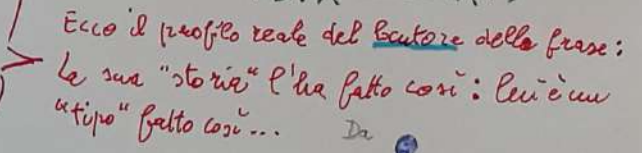 Ecco il profilo reale del locutore della frase:
la sua "storia" l'ha fatto così: lui è un
"tipo" fatto così...
Da